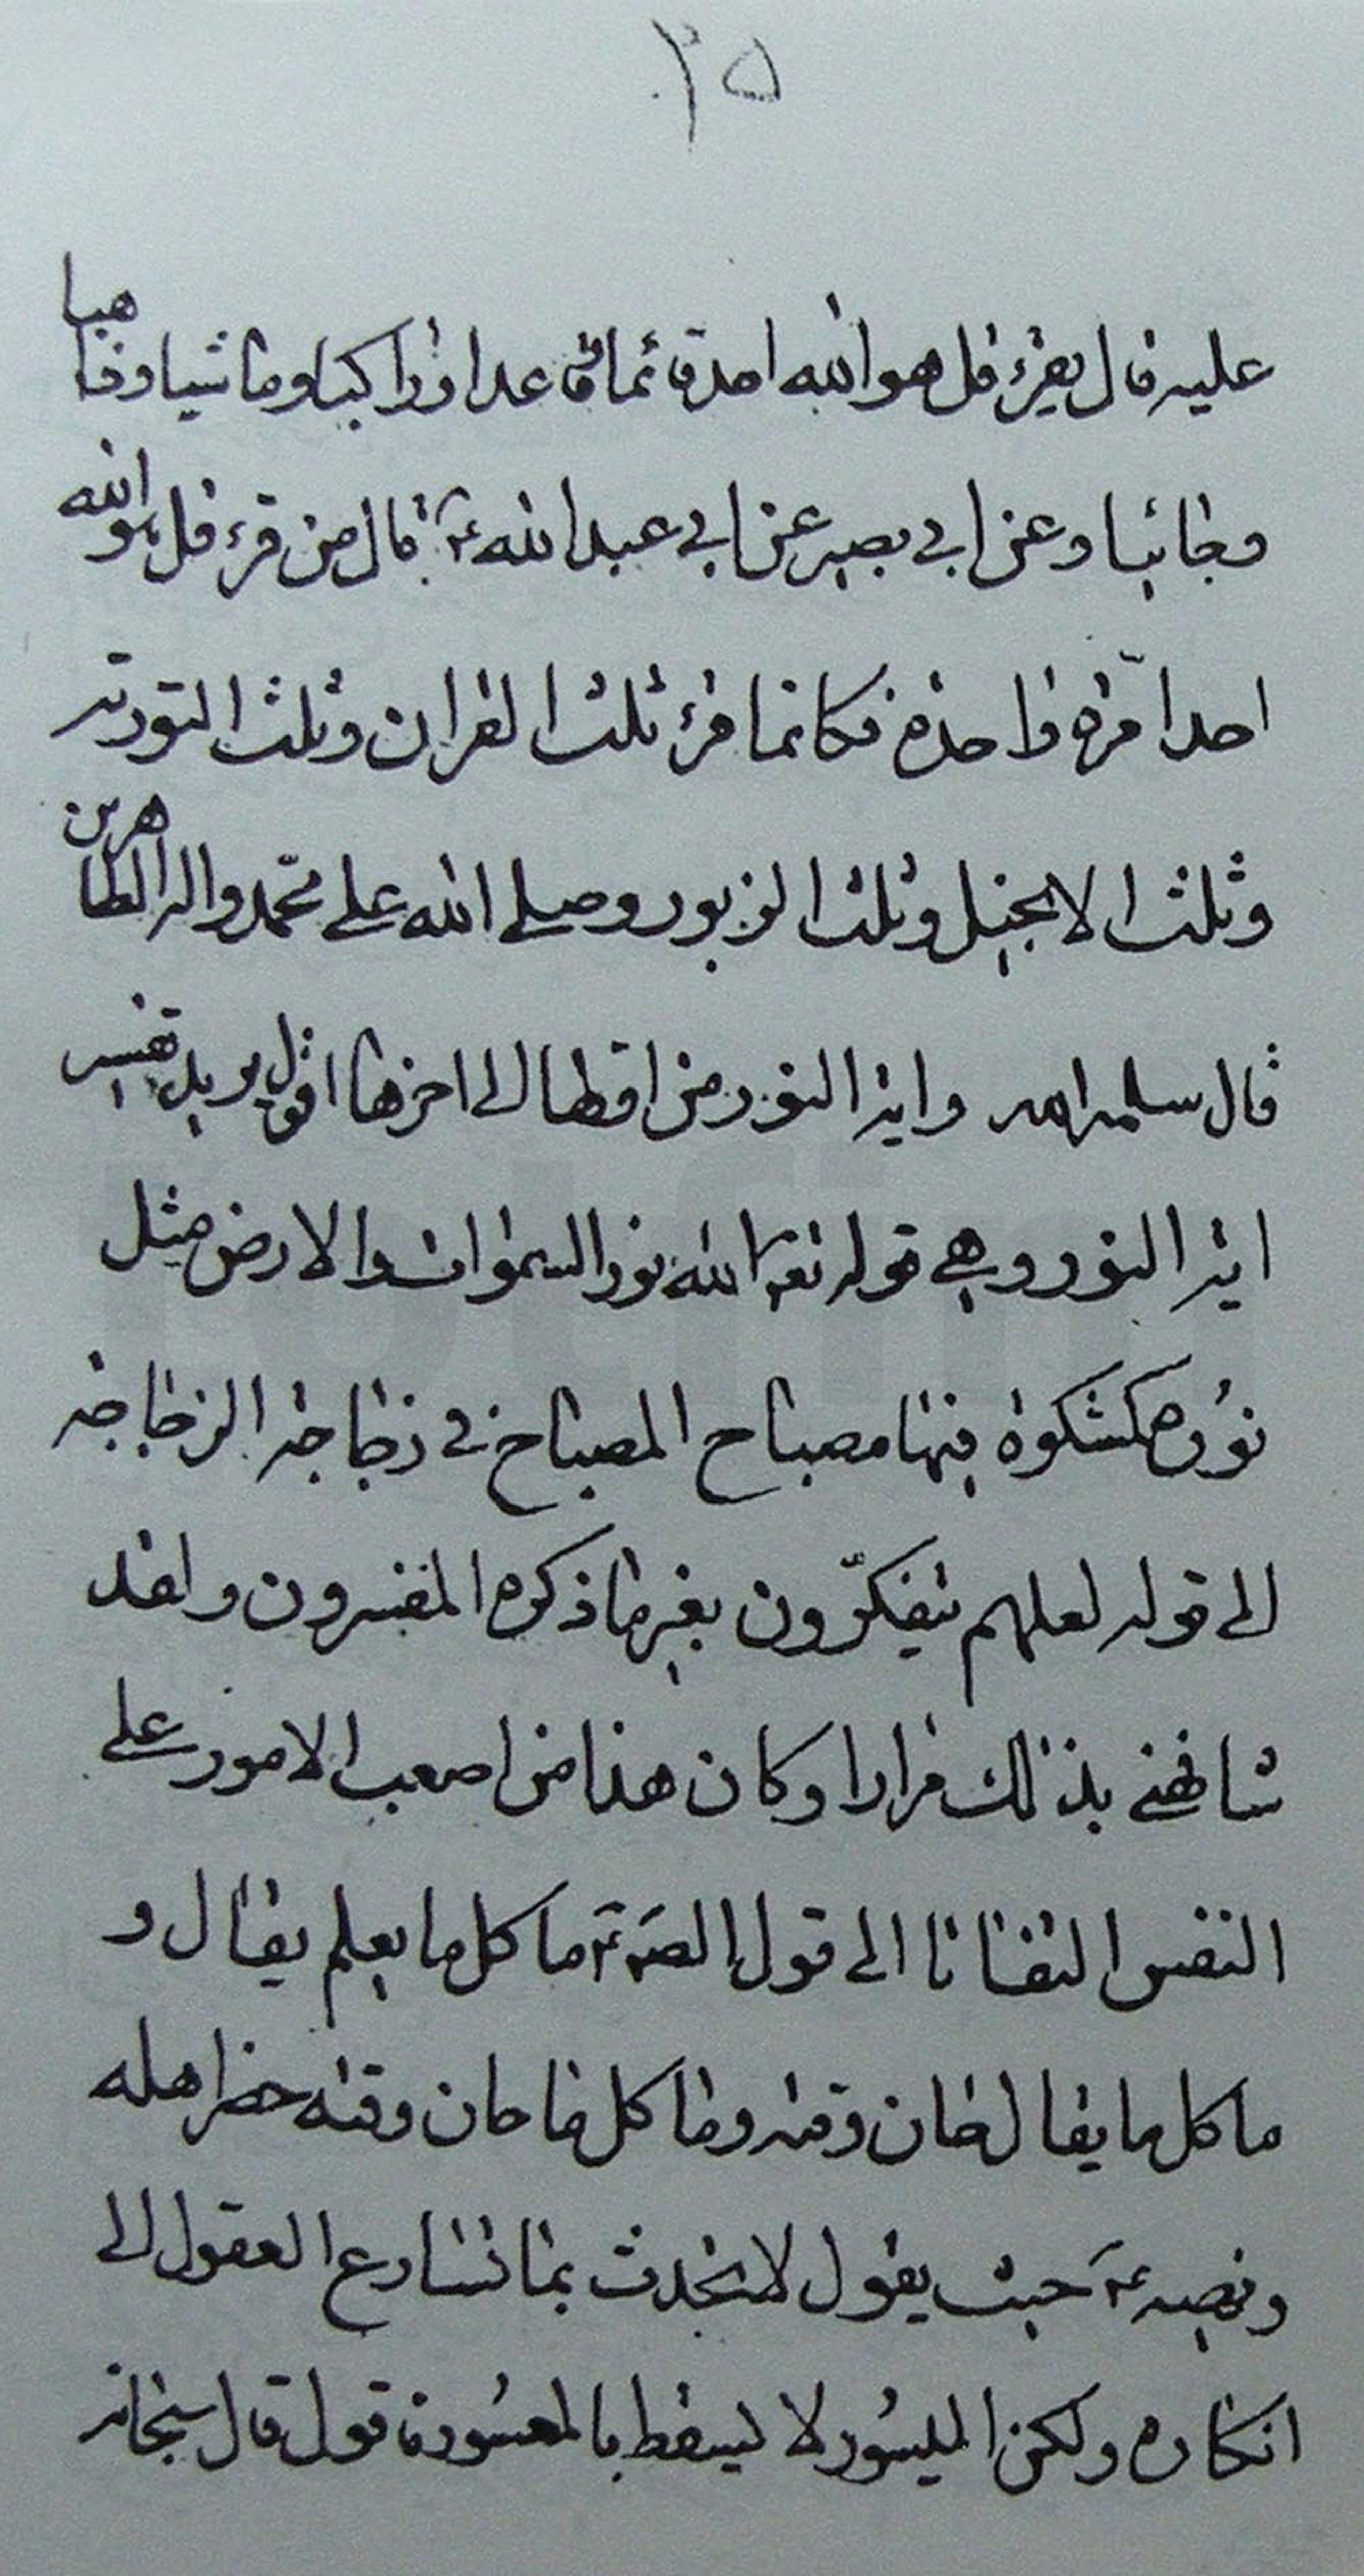 ٢٥
عليه قال يقرء قل هو الله احد قائما قاعدا وراكبا وماشيا وذاهبا
وجائيا وعن ابي بصير عن ابي عبدالله ع قال من قرء قل هو الله
احدا مرّة واحدة فكانما قرء ثلث القران وثلث التورية
وثلث الانجيل وثلث الزبور وصلى الله على محمد واله الطاهرين
قال سلمه الله واية النور من اولها الى اخرها اقول يريد تفسير
اية النور وهي قوله تعا الله نور السموات والارض مثل
نوره كمشكوة فيها مصباح المصباح في زجاجة الزجاجة
الى قوله لعلهم يتفكّرون بغير ما ذكره المفسرون ولقد
شافهني بذلك مرارا وكان هذا من اصعب الامور على
النفس التفاتا الى قول الص ع ما كل ما يعلم يقال و
ما كل ما يقال حان وقته وما كل ما حان وقته حضر اهله
ونصه ع حيث يقول لا تتحدث بما تسارع العقول الى
انكاره ولكن الميسور لا يسقط بالمعسور فاقول قال سبحانه